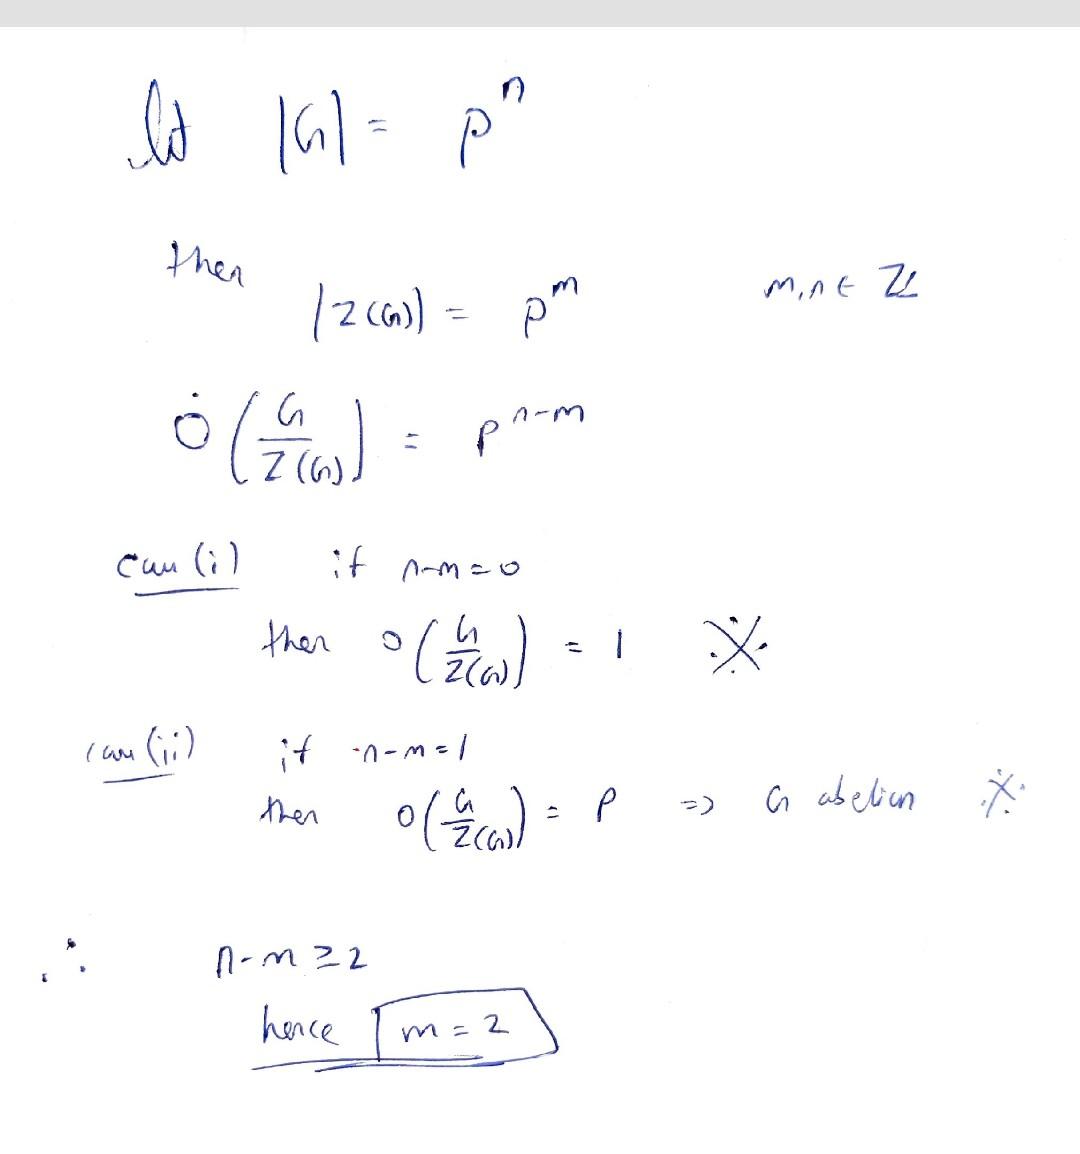 let |G| = pⁿ
then
|Z(G)| = pᵐ m, n ∈ ℤ
o(G/Z(G)) = pⁿ⁻ᵐ
case (i) if n-m=0
then o(G/Z(G)) = 1 ※
case (ii) if n-m=1
then o(G/Z(G)) = p => G abelian ※
∴ n-m ≥ 2
hence m = 2